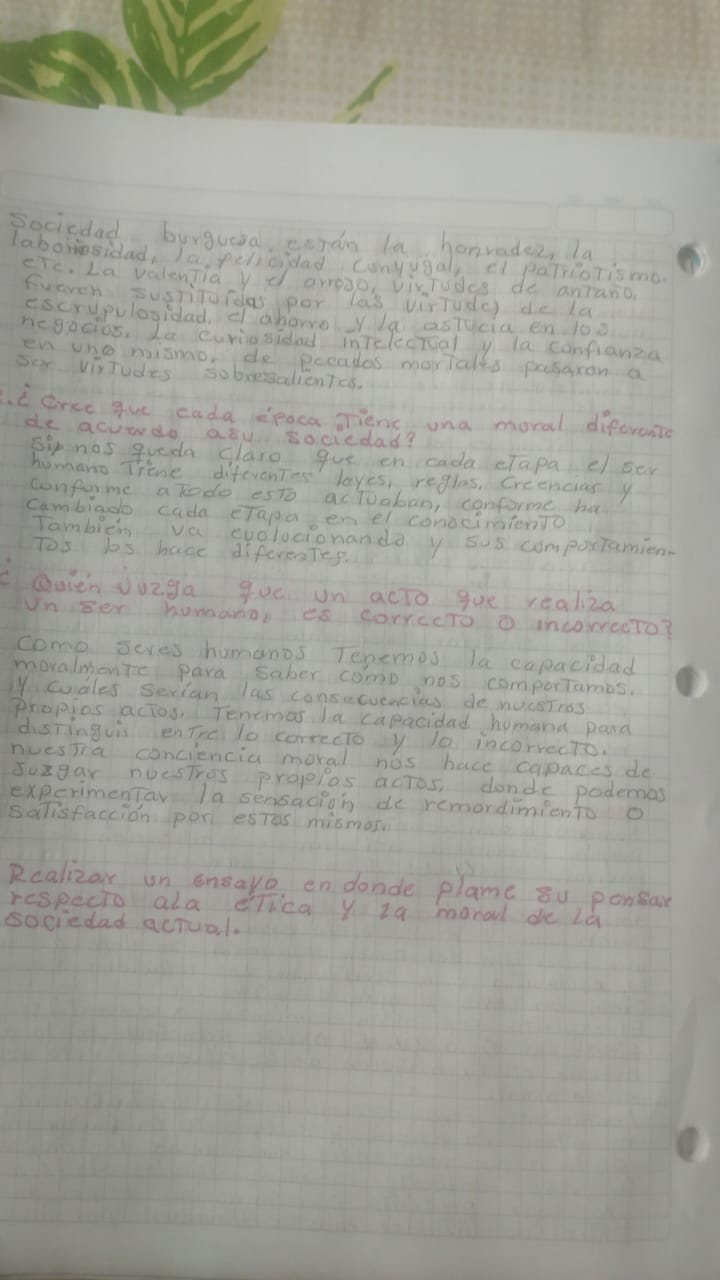 Sociedad burguesa, están la honradez, la
laboriosidad, la felicidad conyugal, el patriotismo.
etc. La valentía y el arrojo, virtudes de antaño,
fueron sustituidas por las virtudes de la
escrupulosidad, el ahorro y la astucia en los
negocios. La curiosidad intelectual y la confianza
en uno mismo, de pecados mortales pasaron a
ser virtudes sobresalientes.
¿Cree que cada época tiene una moral diferente
de acuerdo asu sociedad?
Si, nos queda claro que en cada etapa el ser
humano tiene diferentes leyes, reglas, creencias y
conforme a todo esto actuaban, conforme ha
cambiado cada etapa en el conocimiento
También va evolucionando y sus comportamien-
tos los hace diferentes.
¿Quién Juzga que un acto que realiza
un ser humano, es correcto o incorrecto?
Como seres humanos Tenemos la capacidad
moralmente para saber como nos comportamos.
Y cuáles serían las consecuencias de nuestros
propios actos. Tenemos la capacidad humana para
distinguis entre lo correcto y lo incorrecto.
nuestra conciencia moral nos hace capaces de
Juzgar nuestros propios actos, donde podemos
experimentar la sensación de remordimiento o
satisfacción por estos mismos.
Realizar un ensayo en donde plame su pensar
respecto ala ética y la moral de la
sociedad actual.